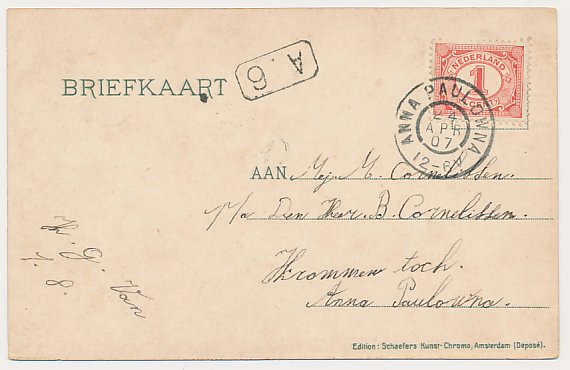 BRIEFKAART
A. 6
NEDERLAND
1
CENT
ANNA PAULOWNA
24
APR
07
12-6N
AAN Mej. M. Cornelissen.
p/a Den Heer. B. Cornelissen.
Krommen toch.
Anna Paulowna.
G. Van
Edition: Schaefers Kunst-Chromo, Amsterdam (Deposé).